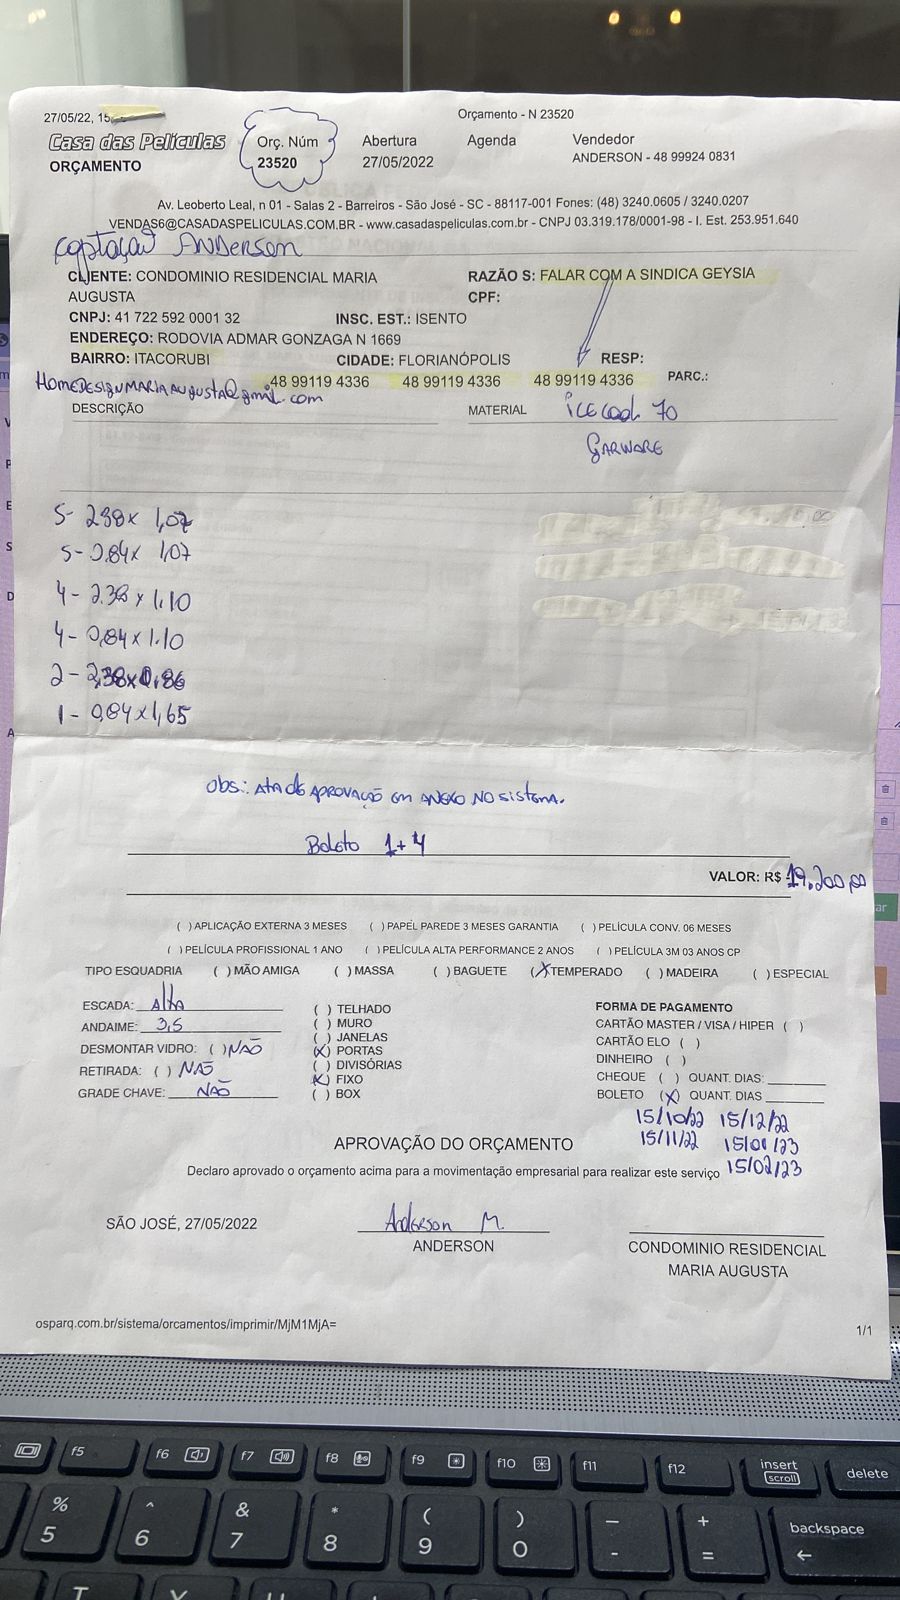 27/05/22, 15
Orçamento - N 23520
Casa das Películas
Orç. Núm
Abertura
Agenda
Vendedor
ORÇAMENTO
23520
27/05/2022
ANDERSON - 48 99924 0831
Av. Leoberto Leal, n 01 - Salas 2 - Barreiros - São José - SC - 88117-001 Fones: (48) 3240.0605 / 3240.0207
VENDAS6@CASADASPELICULAS.COM.BR - www.casadaspeliculas.com.br - CNPJ 03.319.178/0001-98 - I. Est. 253.951.640
Captação Anderson
CLIENTE: CONDOMINIO RESIDENCIAL MARIA AUGUSTA
RAZÃO S: FALAR COM A SINDICA GEYSIA
CPF:
CNPJ: 41 722 592 0001 32 INSC. EST.: ISENTO
ENDEREÇO: RODOVIA ADMAR GONZAGA N 1669
BAIRRO: ITACORUBI CIDADE: FLORIANÓPOLIS RESP:
48 99119 4336 48 99119 4336 48 99119 4336 PARC.:
HomeDESIGNMARIAAUGUSTA@gmail.com
DESCRIÇÃO
MATERIAL icecool 70
GARWARE
5- 2.38 x 1,07
5- 0.84 x 1,07
4- 2.38 x 1.10
4- 0,84 x 1.10
2- 2,38 x 0,86
1- 0,84 x 1,65
Obs.: Ata de APROVAÇÃO em ANEXO NO sistema.
Boleto 1+4
VALOR: R$ 19.200,00
( ) APLICAÇÃO EXTERNA 3 MESES ( ) PAPEL PAREDE 3 MESES GARANTIA ( ) PELÍCULA CONV. 06 MESES
( ) PELÍCULA PROFISSIONAL 1 ANO ( ) PELÍCULA ALTA PERFORMANCE 2 ANOS ( ) PELÍCULA 3M 03 ANOS CP
TIPO ESQUADRIA ( ) MÃO AMIGA ( ) MASSA ( ) BAGUETE (X) TEMPERADO ( ) MADEIRA ( ) ESPECIAL
ESCADA: Alta
ANDAIME: 3,5
DESMONTAR VIDRO: ( ) NÃO
RETIRADA: ( ) NÃO
GRADE CHAVE: NÃO
( ) TELHADO
( ) MURO
( ) JANELAS
(X) PORTAS
( ) DIVISÓRIAS
(X) FIXO
( ) BOX
FORMA DE PAGAMENTO
CARTÃO MASTER / VISA / HIPER ( )
CARTÃO ELO ( )
DINHEIRO ( )
CHEQUE ( ) QUANT. DIAS:
BOLETO (X) QUANT. DIAS
15/10/22 15/12/22
15/11/22 15/01/23
15/02/23
APROVAÇÃO DO ORÇAMENTO
Declaro aprovado o orçamento acima para a movimentação empresarial para realizar este serviço
SÃO JOSÉ, 27/05/2022
Anderson M.
ANDERSON
CONDOMINIO RESIDENCIAL
MARIA AUGUSTA
osparq.com.br/sistema/orcamentos/imprimir/MjM1MjA=
1/1
f5 f6 f7 f8 f9 f10 f11 f12 insert delete
scroll
% ^ & * ( ) _ + backspace
5 6 7 8 9 0 - =
T Y